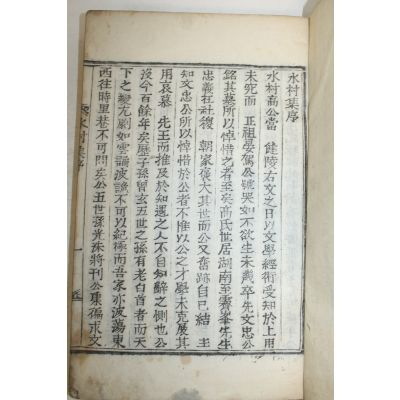 水村集序
水村高公當 健陵右文之日以文學經術受知於上用
未究而 正祖晏駕公號哭如不欲生未幾卒先文忠公
銘其墓所以悼惜之者至矣高氏世居湖南至霽峯先生
忠義在社稷 朝家褒大其世而公又奮跡自己結 主
知文忠公所以悼惜於公者不惟以公之才學未克展其
用哀慕 先王而推及於知遇之人不自知辭之惻也公
沒今百餘年矣歷子孫曾玄五世之孫有老白首者而天
下之變尤劇如雲譎波詭不可以紀極而吾家亦波蕩東
西往時里巷不可問矣公五世孫光洙將刊公稾徧求文
水村集序
一